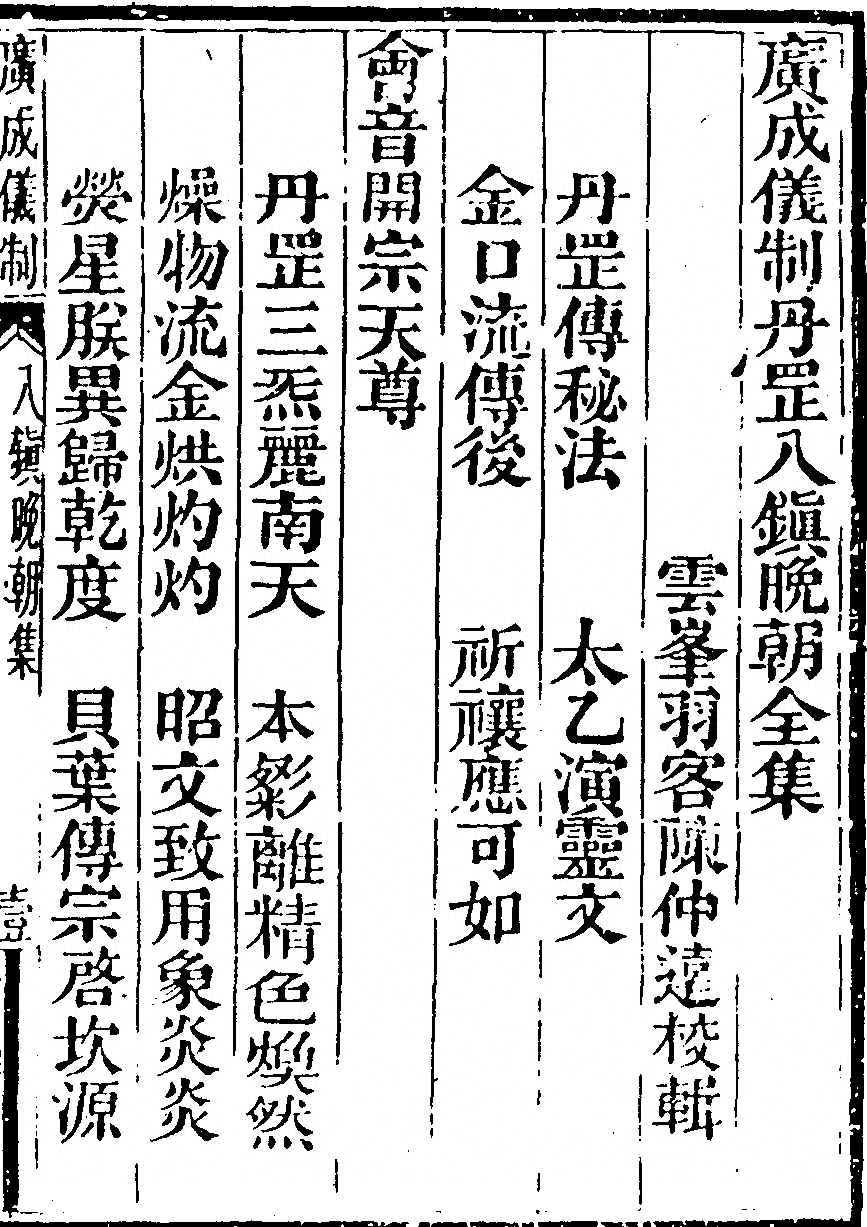 廣成儀制丹罡八鎭晩朝全集
雲峯羽客陳仲遠校輯
丹罡傳秘法　太乙演靈文
金口流傳後　祈禳應可如
會音開宗天尊
丹罡三炁麗南天　本彩離精色煥然
燥物流金烘灼灼　昭文致用象炎炎
熒星朕異歸乾度　貝葉傳宗啓坎源
廣成儀制　八鎭晩朝集　壹